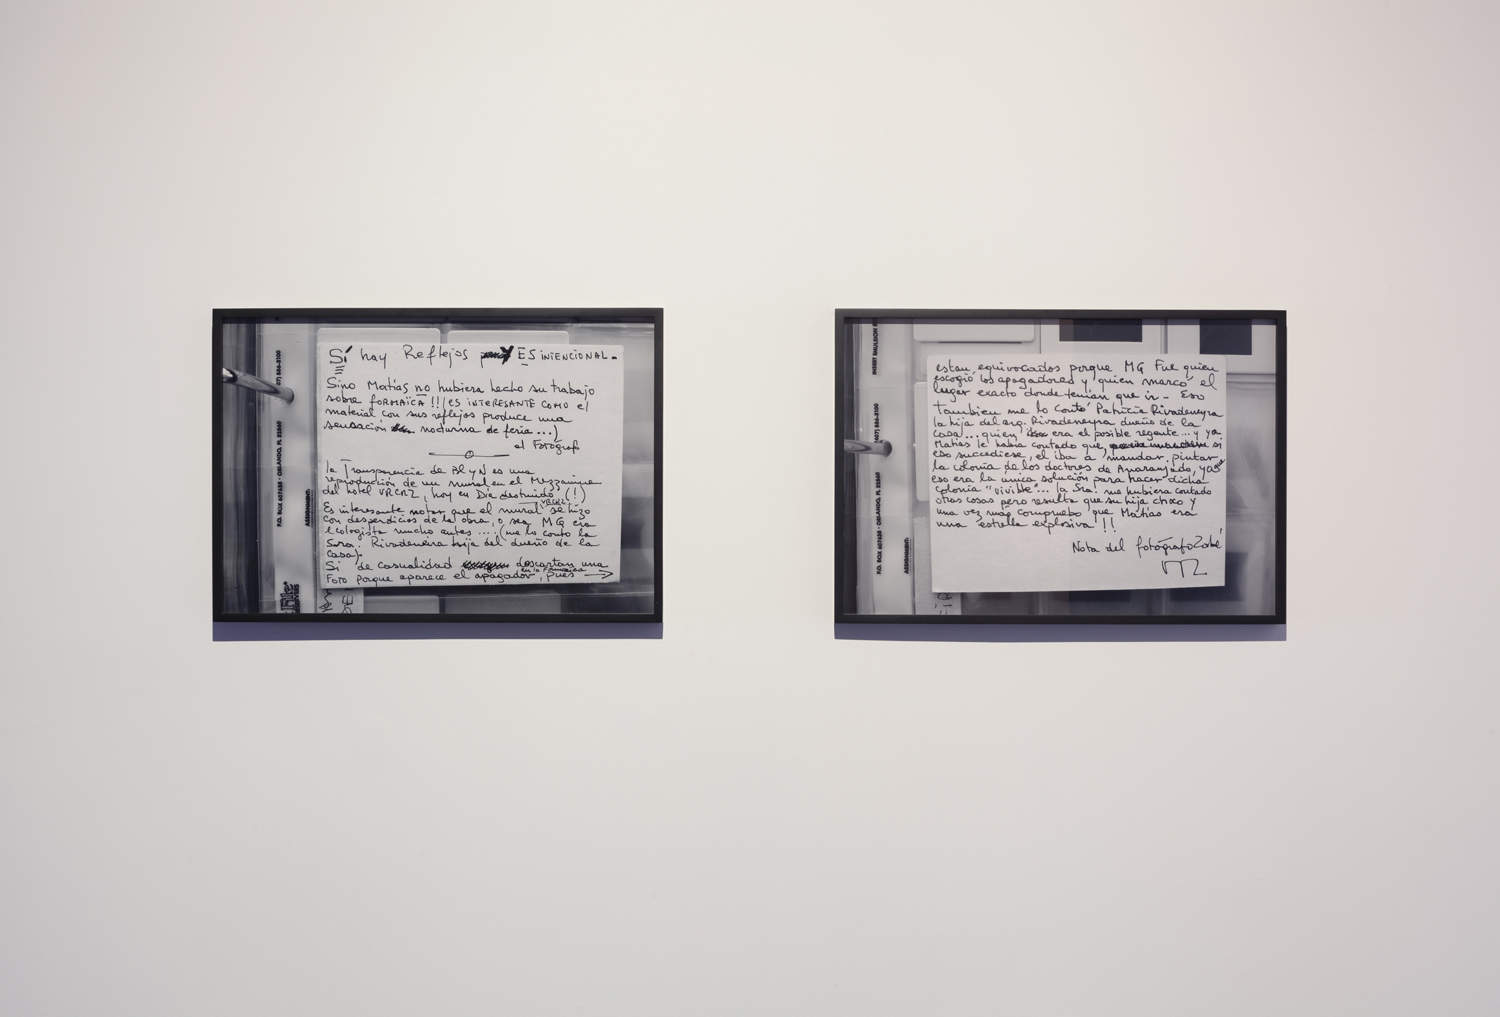 Sí hay Reflejos y ES iNTENCIONAL.
Sino Matías no hubiera hecho su trabajo
sobre FORMAÏCA!! (ES INTERESANTE COMO el
material con sus reflejos produce una
sensación nocturna de feria...)
el Fotógrafo
la Transparencia de Bl y N es una
reproducción de un mural en el Mezzanine
del hotel VRCRZ, hoy en Día destruido (!)
Es interesante notar que el mural VRCRZ se hizo
con desperdicios de la obra, o sea MG era
ecologista mucho antes .... (me lo conto la
Sora. Rivadeneyra hija del dueño de la
casa).
Si de casualidad descartan una
Foto porque aparece el apagador en la Formaica, pues →
P.O. BOX 607638 · ORLANDO, FL 32860
ASSIGNMENT:
estan equivocados porque MG Fue quien
escogió los apagadores y quien marcó el
lugar exacto donde tenían que ir - Eso
tambien me lo contó Patricia Rivadeneyra
la hija del arq. Rivadeneyra dueño de la
casa... quien era el posible regente... y ya
Matías le había contado que si
eso sucediese, el iba a mandar pintar
la colonia de los doctores de Anaranjado, ya que
eso era la única solución para hacer dicha
colonia "vivible"... la Sra. me hubiera contado
otras cosas pero resulta que su hija choco y
una vez más compruebo que Matías era
una estrella explosiva!!
Nota del fotógrafo Zabé
(407) 886-3100
P.O. BOX 607638 · ORLANDO, FL 32860
ASSIGNMENT: